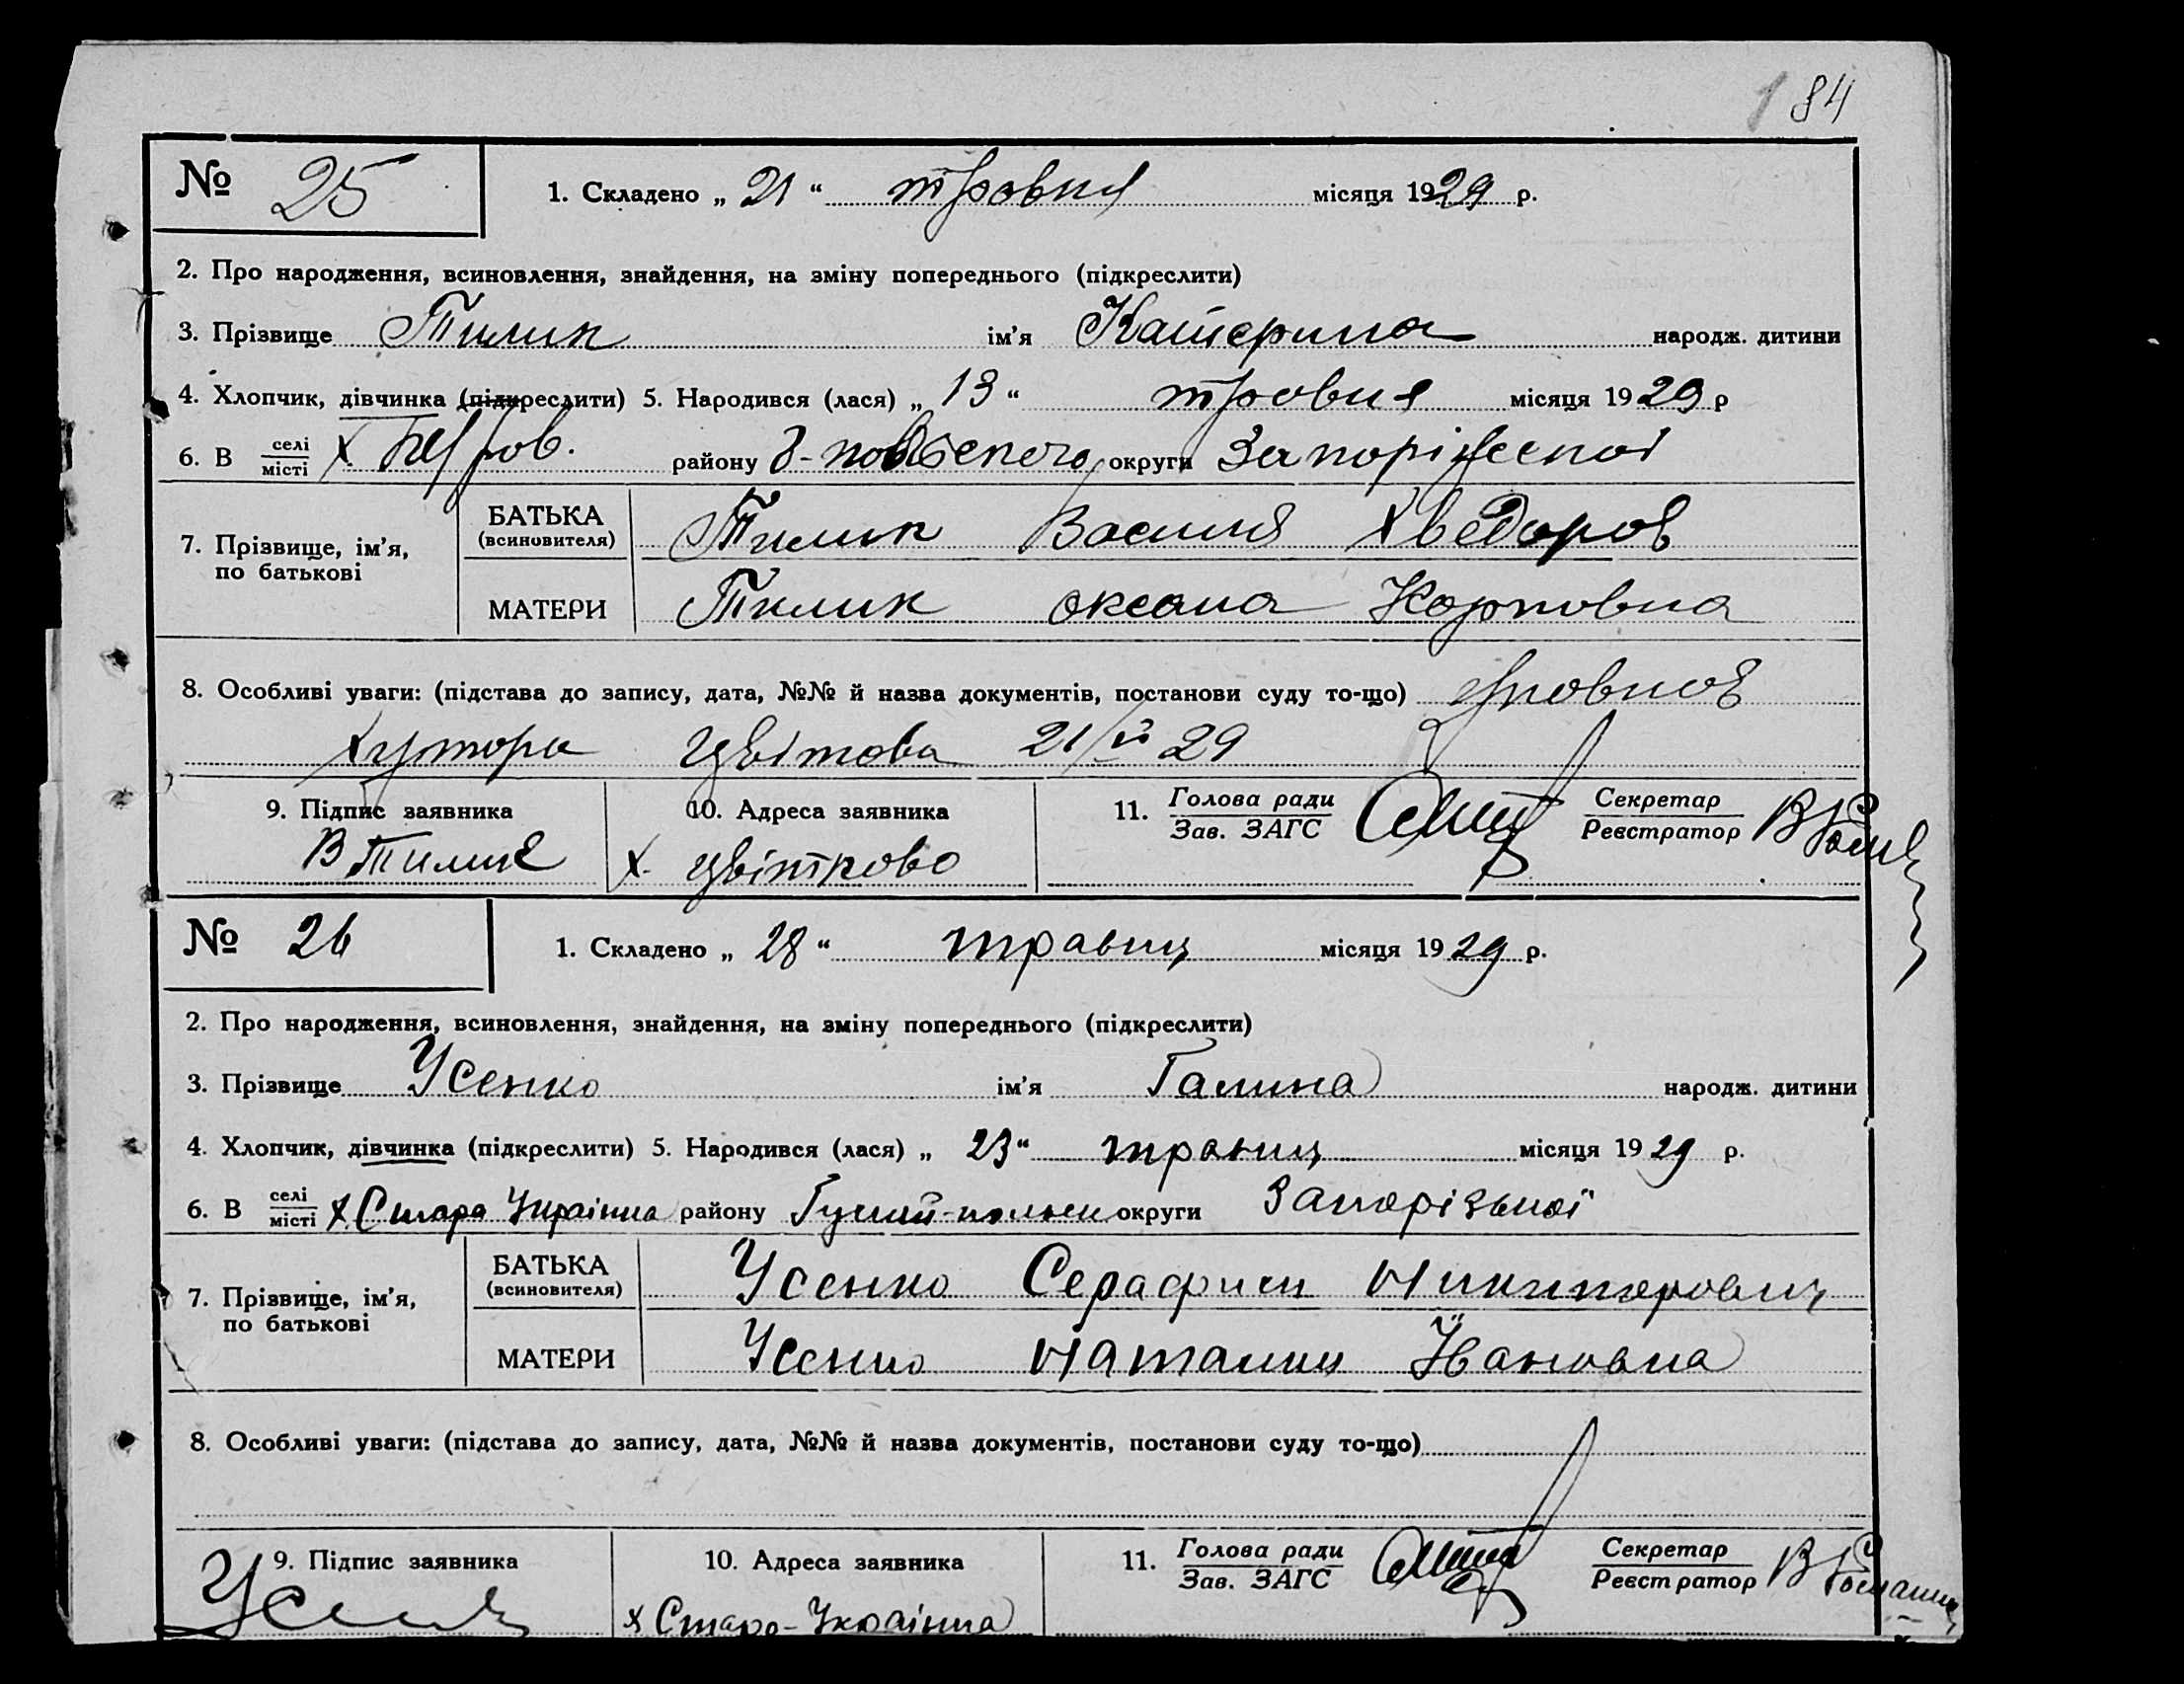 184
№ 25
1. Складено „ 21 “ травня місяця 1929 р.
2. Про народження, всиновлення, знайдення, на зміну попереднього (підкреслити)
3. Прізвище Тилик ім’я Катерина народж. дитини
4. Хлопчик, дівчинка (підкреслити) 5. Народився (лася) „ 13 “ травня місяця 1929 р
6. В селі/місті Х. району округи Запоріжської
7. Прізвище, ім’я, по батькові
БАТЬКА (всиновителя) Тилик Василий Хведоров
МАТЕРИ Тилик Оксана Карповна
8. Особливі уваги: (підстава до запису, дата, №№ й назва документів, постанови суду то-що)
Хутора 29
9. Підпис заявника 10. Адреса заявника 11. Голова ради/Зав. ЗАГС Секретар/Реєстратор
В Тилик х. Цвіткова
№ 26
1. Складено „ 28 “ травня місяця 1929 р.
2. Про народження, всиновлення, знайдення, на зміну попереднього (підкреслити)
3. Прізвище Усенко ім’я Галина народж. дитини
4. Хлопчик, дівчинка (підкреслити) 5. Народився (лася) „ 23 “ травня місяця 1929 р.
6. В селі/місті х Стара Українка району округи Запорізької
7. Прізвище, ім’я, по батькові
БАТЬКА (всиновителя) Усенко Серафим
МАТЕРИ Усенко
8. Особливі уваги: (підстава до запису, дата, №№ й назва документів, постанови суду то-що)
9. Підпис заявника 10. Адреса заявника 11. Голова ради/Зав. ЗАГС Секретар/Реєстратор
х Старо-Українка